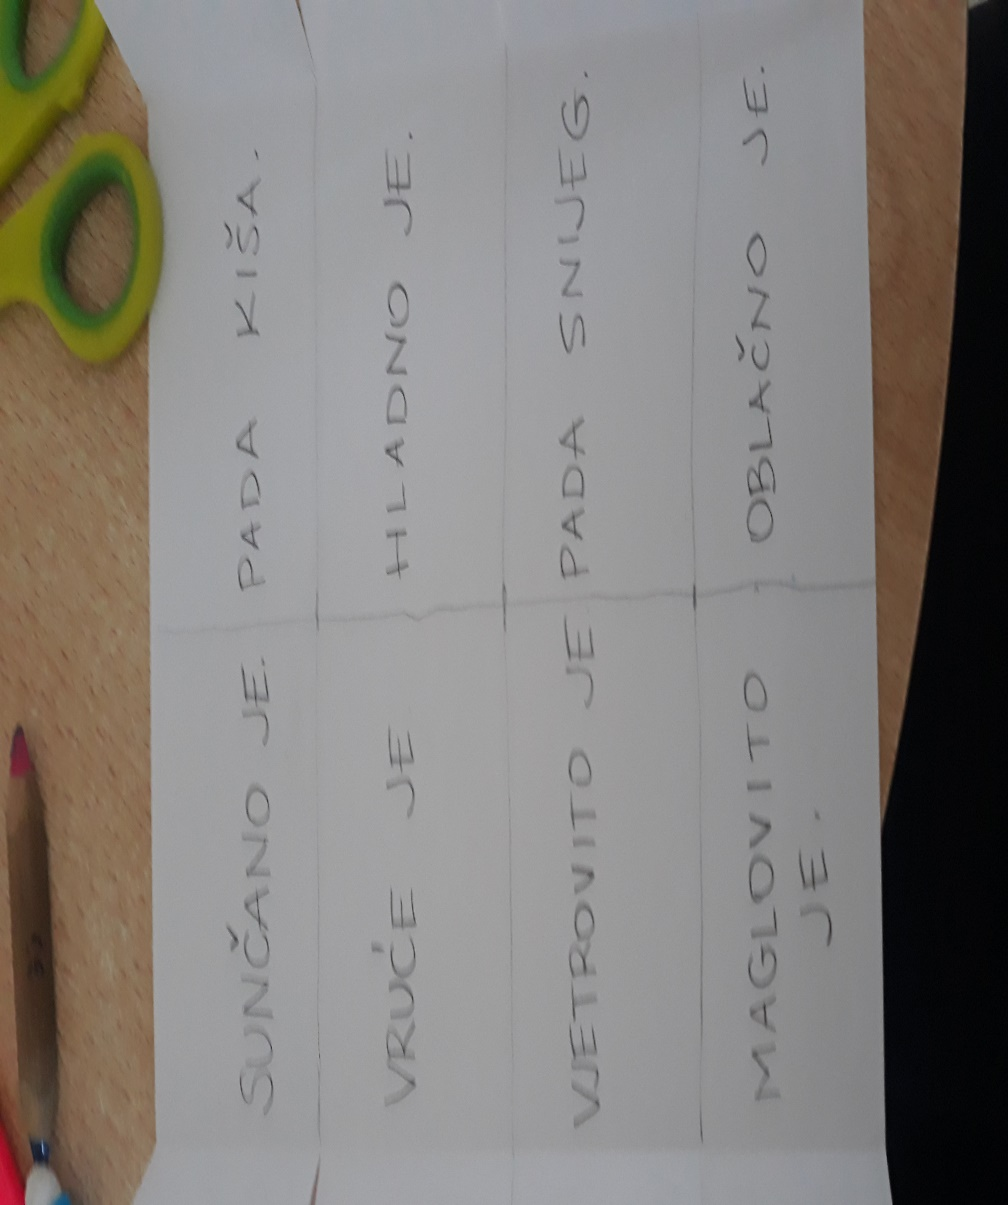 SUNČANO JE. PADA KIŠA.
VRUĆE JE HLADNO JE.
VJETROVITO JE PADA SNIJEG.
MAGLOVITO OBLAČNO JE.
JE.